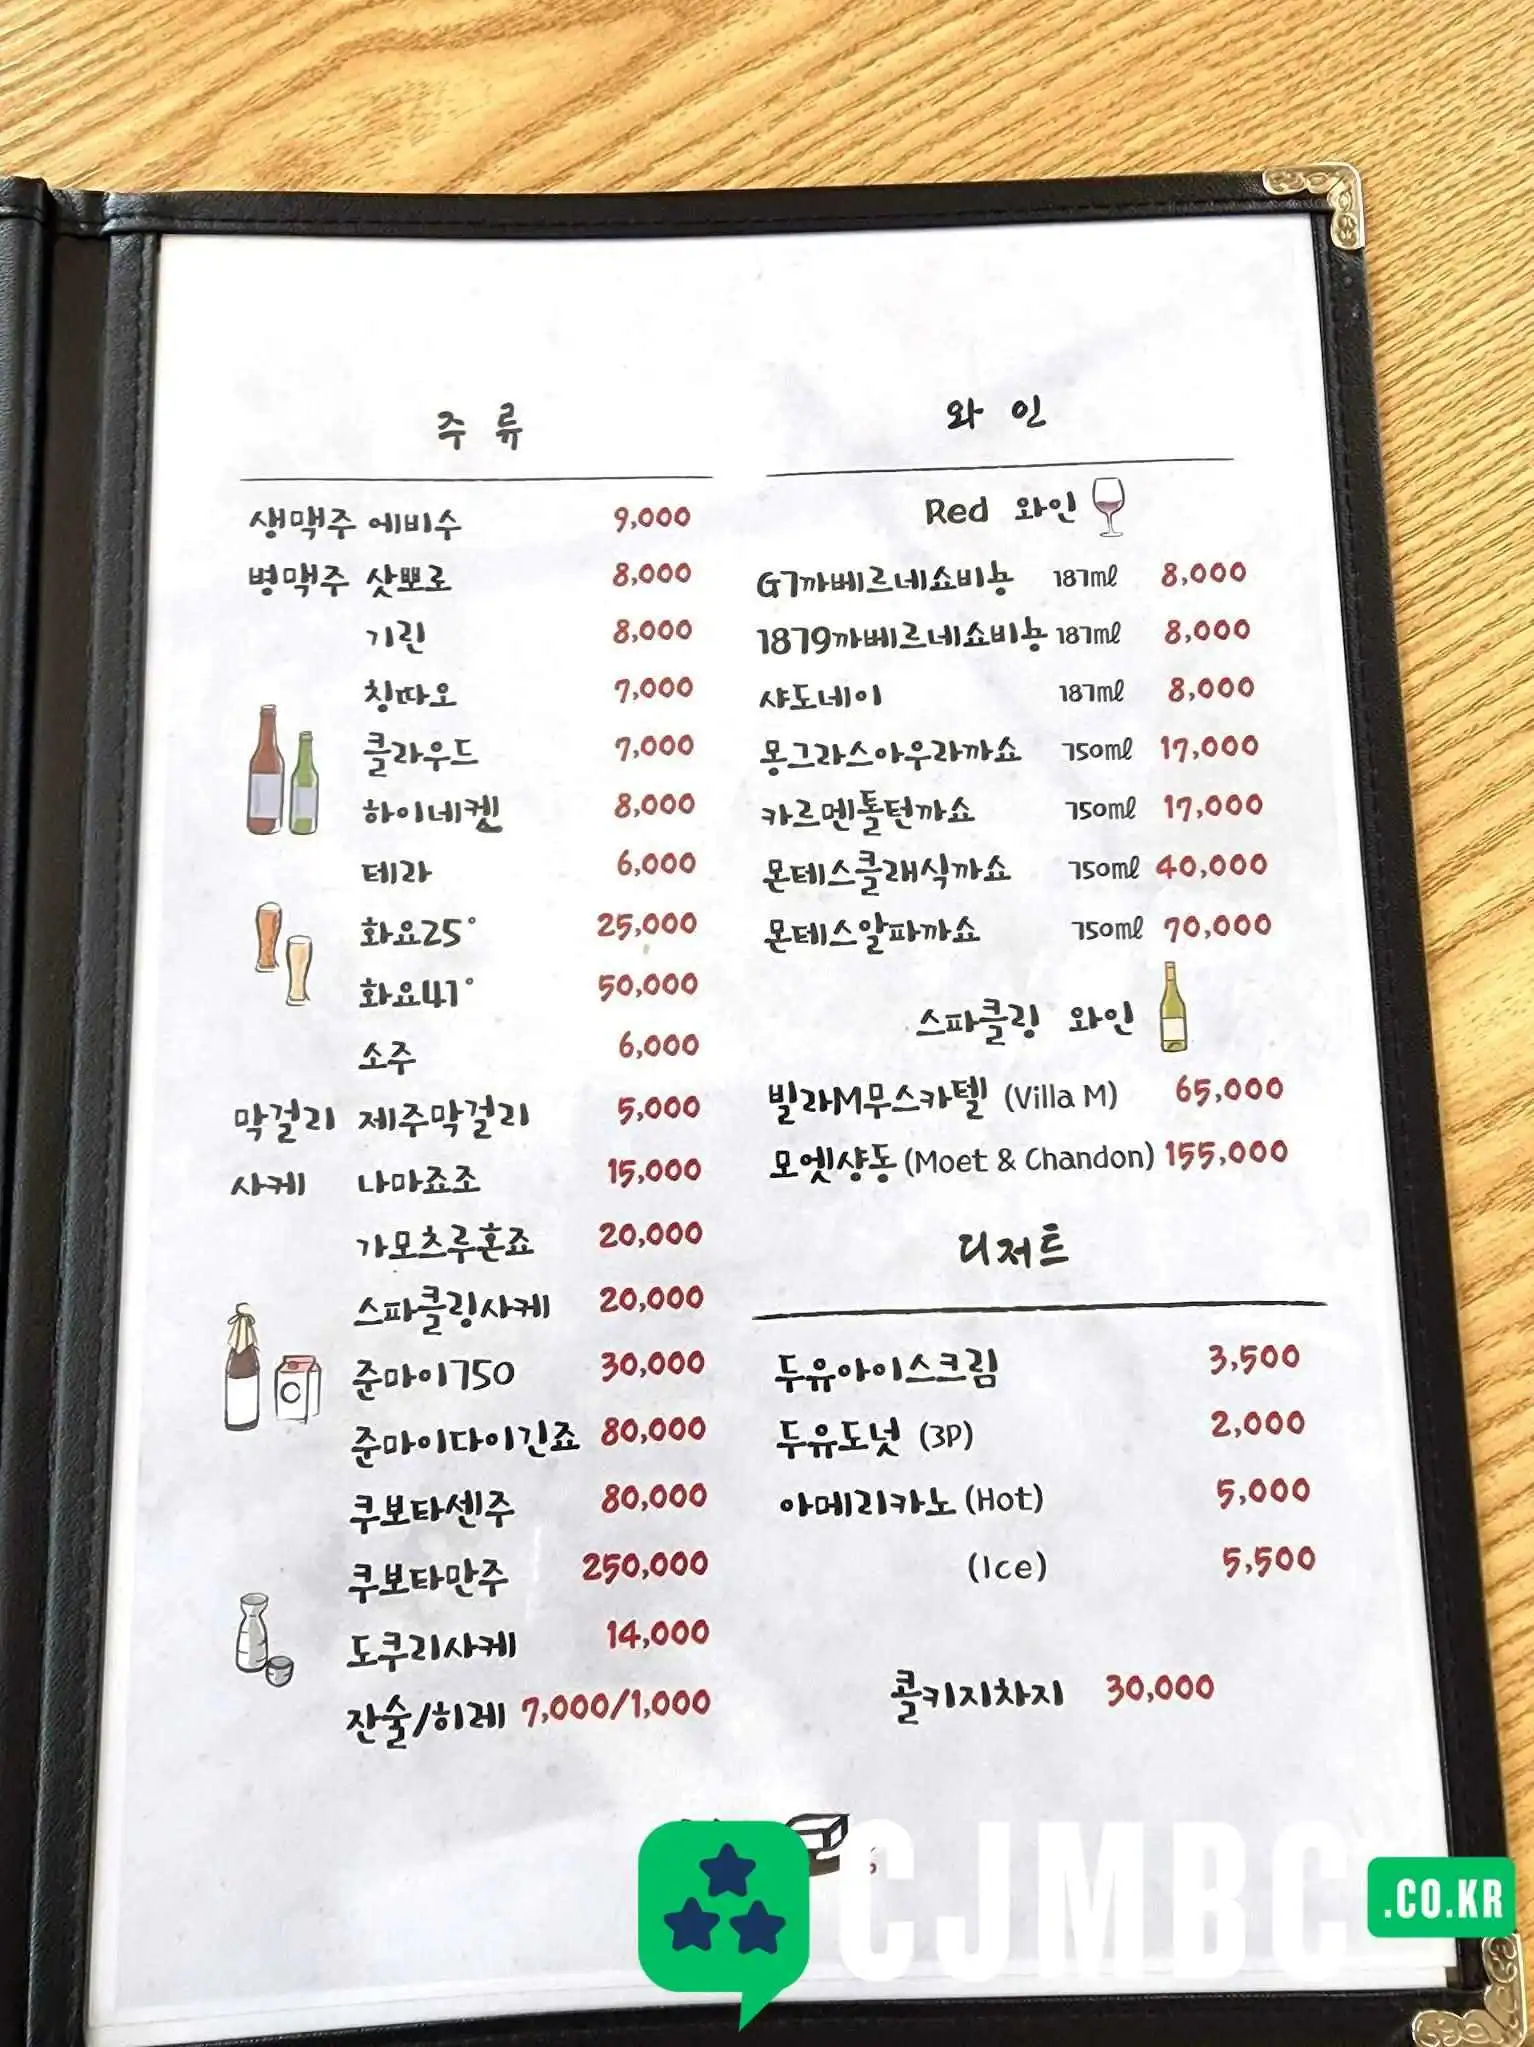 주 류
생맥주 에비수 9,000
병맥주 삿뽀로 8,000
기린 8,000
칭따오 7,000
클라우드 7,000
하이네켄 8,000
테라 6,000
화요25° 25,000
화요41° 50,000
소주 6,000
막걸리 제주막걸리 5,000
사케 나마죠조 15,000
가모츠루혼죠 20,000
스파클링사케 20,000
준마이750 30,000
준마이다이긴죠 80,000
쿠보타센주 80,000
쿠보타만주 250,000
도쿠리사케 14,000
잔술/히레 7,000/1,000
와 인
Red 와인
G7까베르네쇼비뇽 187ml 8,000
1879까베르네쇼비뇽 187ml 8,000
샤도네이 187ml 8,000
몽그라스아우라까쇼 750ml 17,000
카르멘톨턴까쇼 750ml 17,000
몬테스클래식까쇼 750ml 40,000
몬테스알파까쇼 750ml 70,000
스파클링 와인
빌라M무스카텔 (Villa M) 65,000
모엣샹동 (Moet & Chandon) 155,000
디저트
두유아이스크림 3,500
두유도넛 (3P) 2,000
아메리카노 (Hot) 5,000
(Ice) 5,500
콜키지차지 30,000
CJMBC .CO.KR